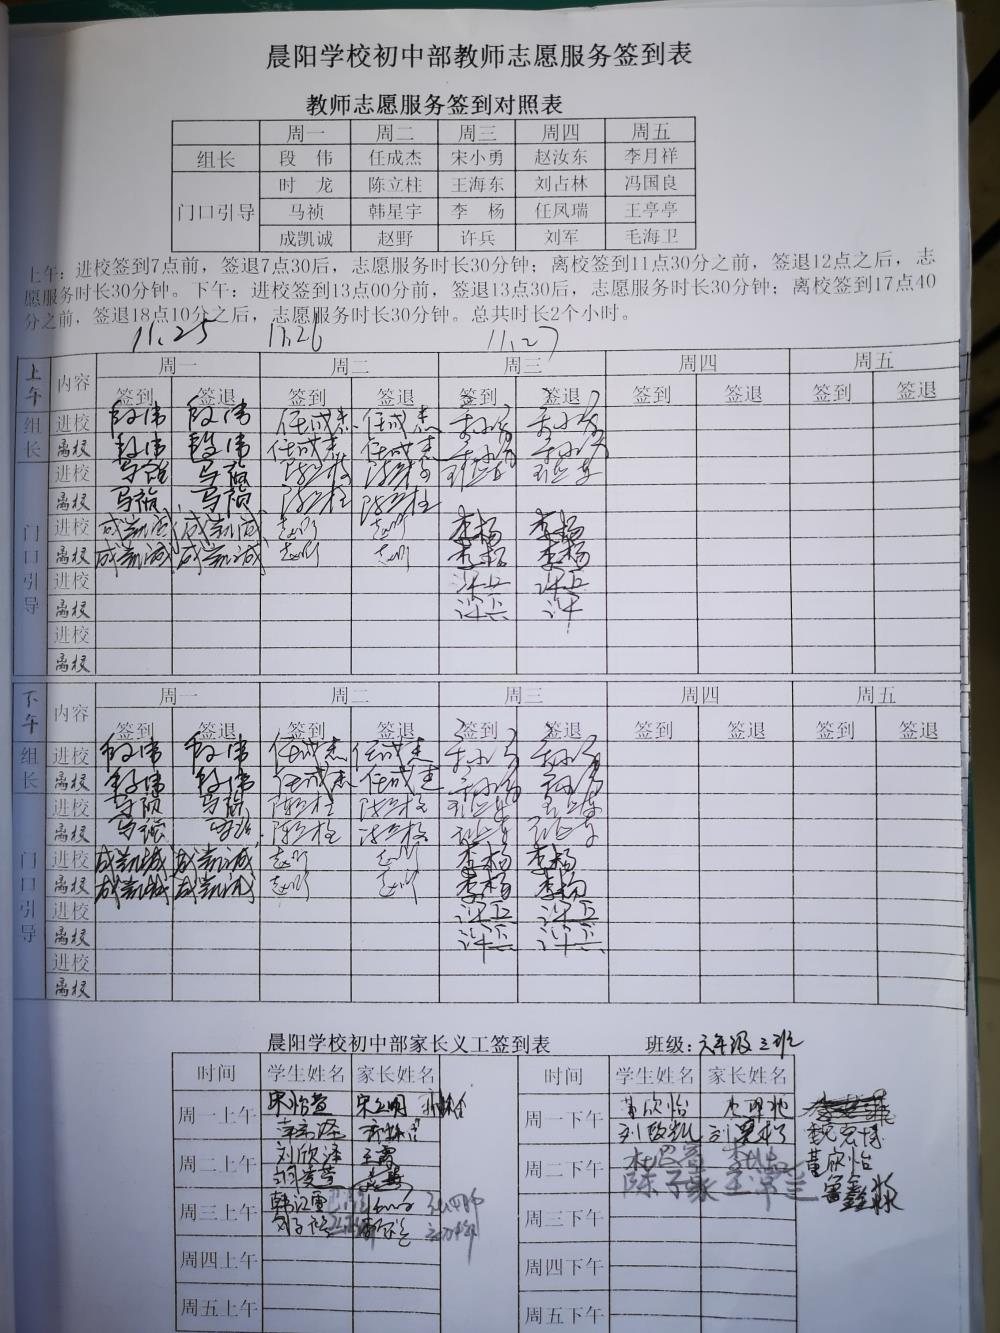 晨阳学校初中部教师志愿服务签到表
教师志愿服务签到对照表
周一 周二 周三 周四 周五
组长 段伟 任成杰 宋小勇 赵汝东 李月祥
门口引导 时龙 陈立柱 王海东 刘占林 冯国良
马祯 韩星宇 李杨 任凤瑞 王亭亭
成凯诚 赵野 许兵 刘军 毛海卫
上午：进校签到7点前，签退7点30后，志愿服务时长30分钟；离校签到11点30分之前，签退12点之后，志
愿服务时长30分钟。下午：进校签到13点00分前，签退13点30后，志愿服务时长30分钟；离校签到17点40
分之前，签退18点10分之后，志愿服务时长30分钟。总共时长2个小时。
11.25 11.26 11.27
上午 内容 周一 周二 周三 周四 周五
签到 签退 签到 签退 签到 签退 签到 签退 签到 签退
组长 进校 段伟 段伟 任成杰 任成杰 宋小勇 宋小勇
离校 段伟 段伟 任成杰 任成杰 宋小勇 宋小勇
门口引导 进校 马祯 马祯 陈立柱 陈立柱 王海东 王海东
离校 马祯 马祯 陈立柱 陈立柱
进校 成凯诚 成凯诚 赵野 赵野 李杨 李杨
离校 成凯诚 成凯诚 赵野 赵野 李杨 李杨
进校 许兵 许兵
离校 许兵 许
进校
离校
下午 内容 周一 周二 周三 周四 周五
签到 签退 签到 签退 签到 签退 签到 签退 签到 签退
组长 进校 段伟 段伟 任成杰 任成杰 宋小勇 宋小勇
离校 段伟 段伟 任成杰 任成杰 宋小勇 宋小勇
门口引导 进校 马祯 马祯 陈立柱 陈立柱 王海东 王海东
离校 马祯 马祯 陈立柱 陈立柱 王海东 王海东
进校 成凯诚 成凯诚 赵野 赵野 李杨 李杨
离校 成凯诚 成凯诚 赵野 赵野 李杨 李杨
进校 许兵 许兵
离校 许兵 许兵
进校
离校
晨阳学校初中部家长义工签到表 班级：六年级三班
时间 学生姓名 家长姓名 时间 学生姓名 家长姓名
周一上午 宋怡萱 周一下午 董欣怡
刘
魏宏博
周二上午 刘欣泽 王霞 周二下午
董欣怡
陈子豪
周三上午 韩江雪 周三下午
周四上午 周四下午
周五上午 周五下午